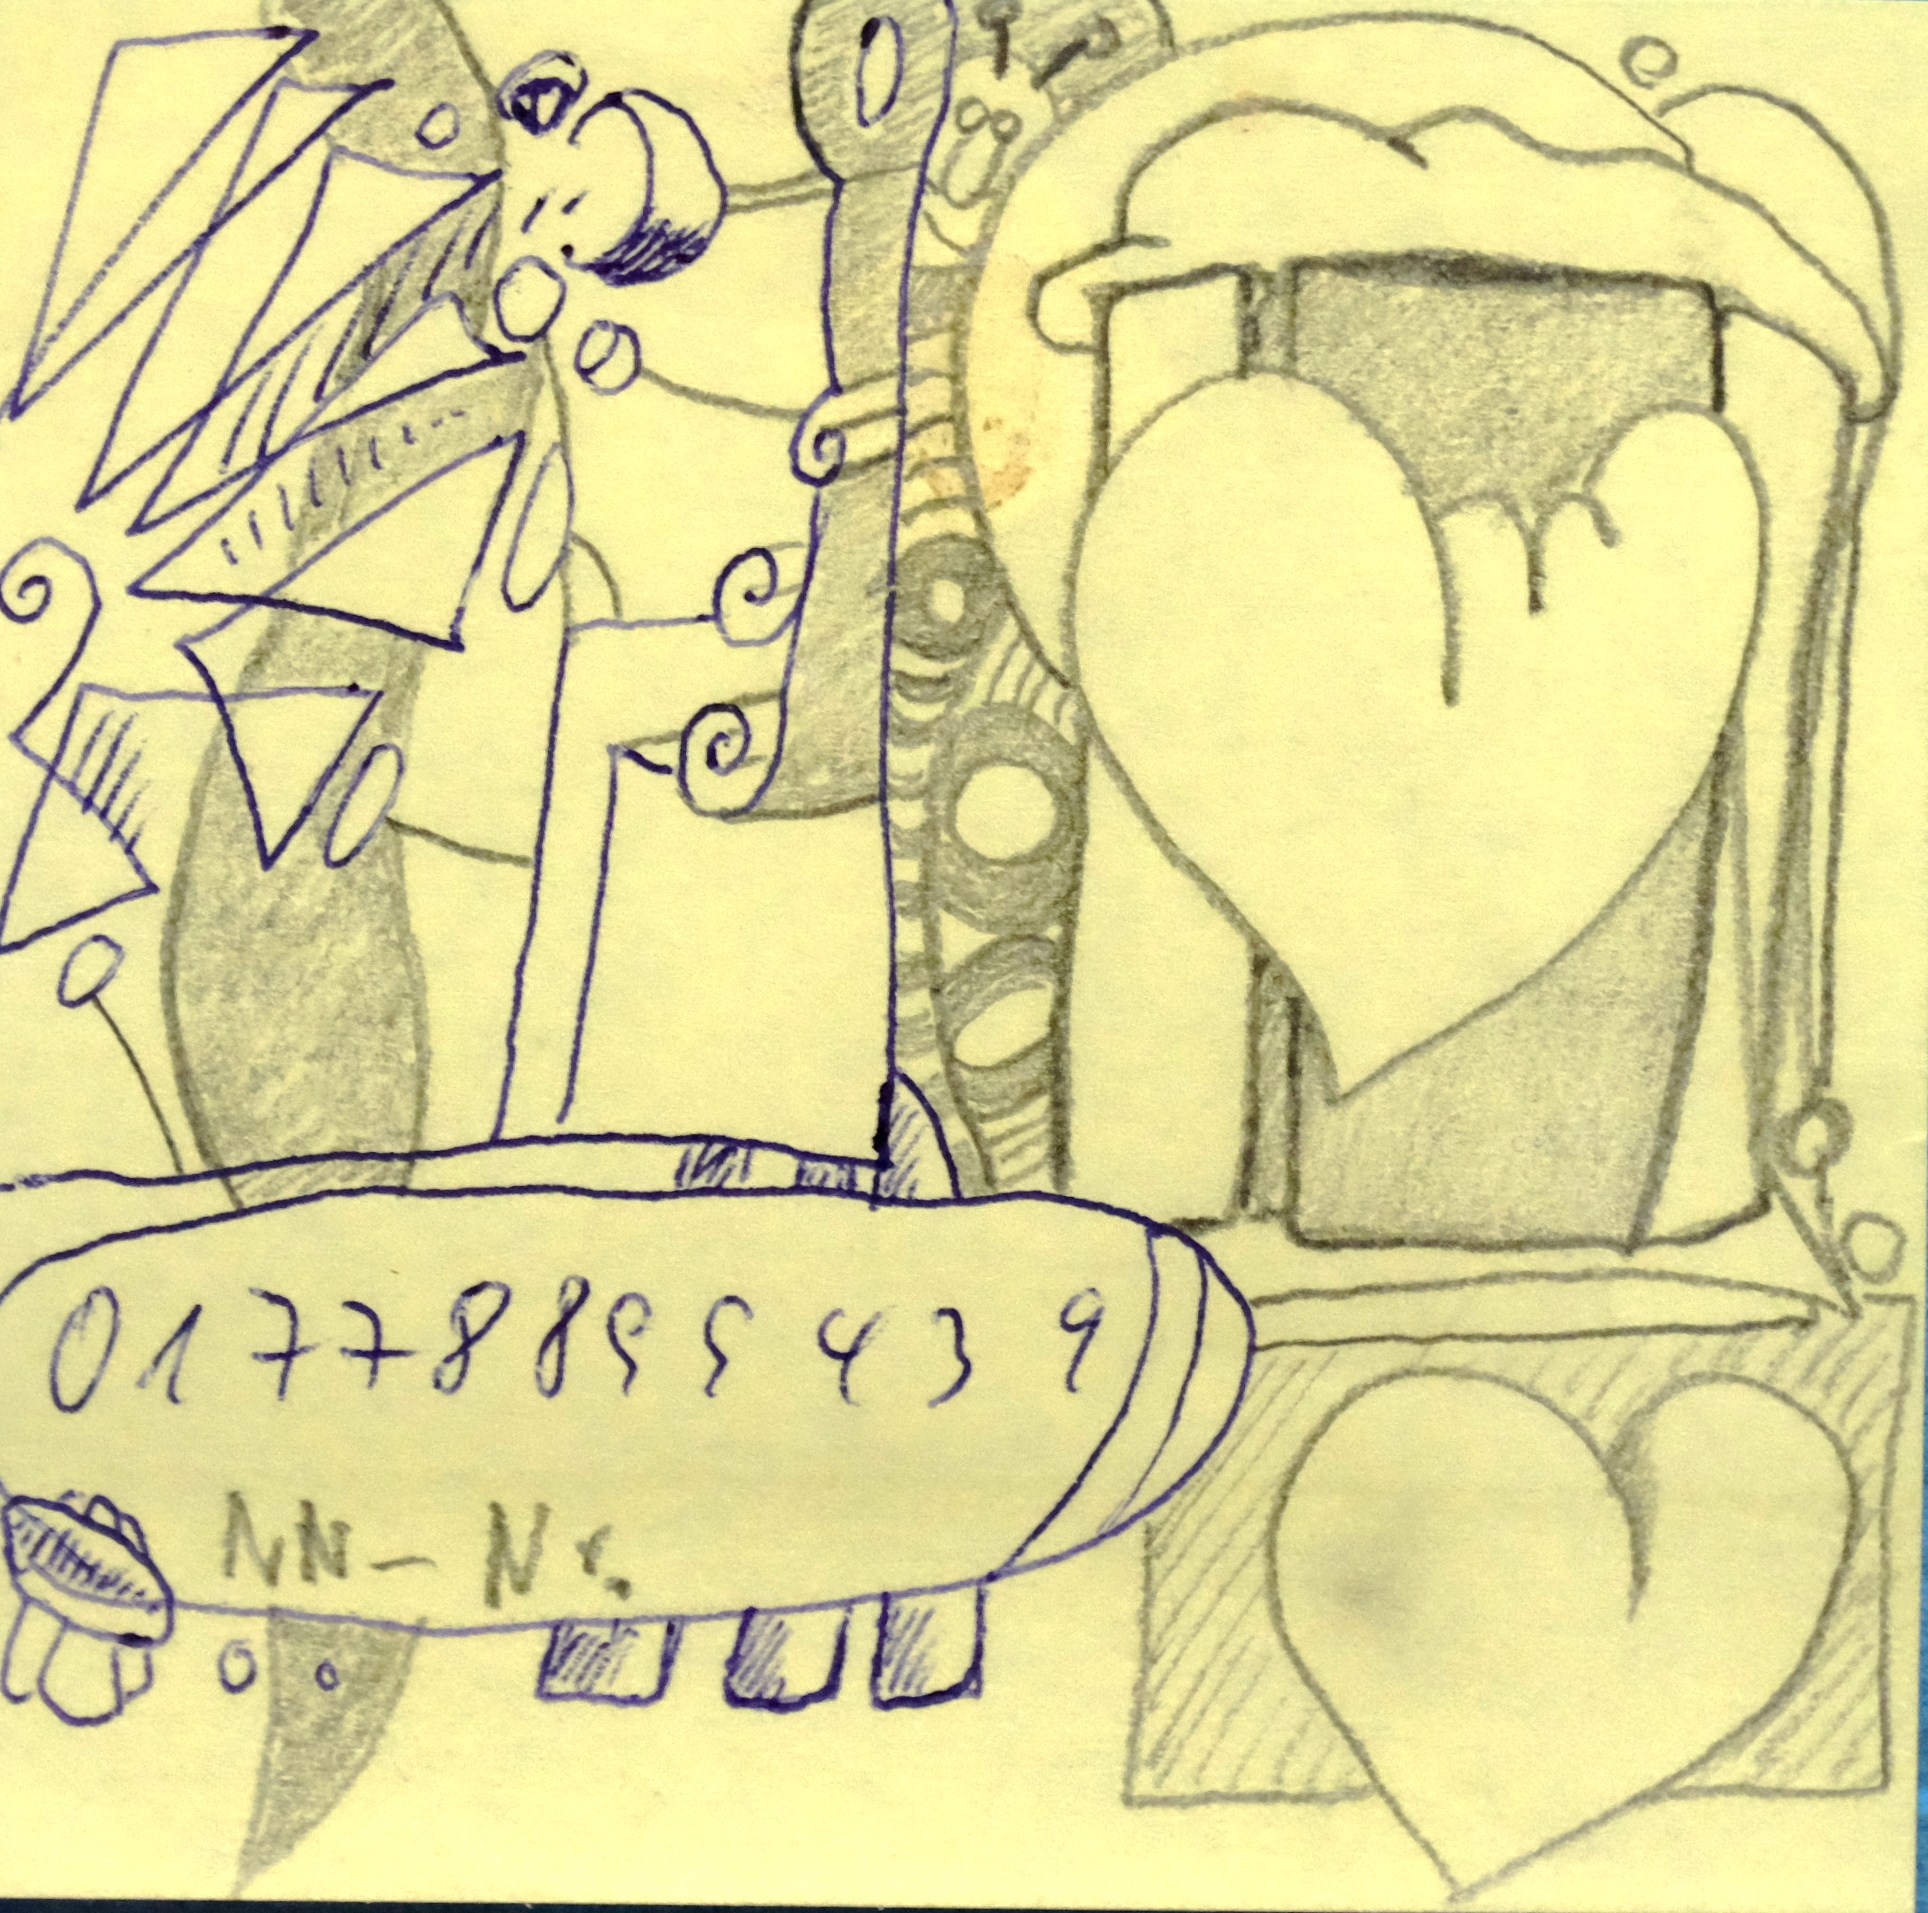 01778855439
NN - Nr.